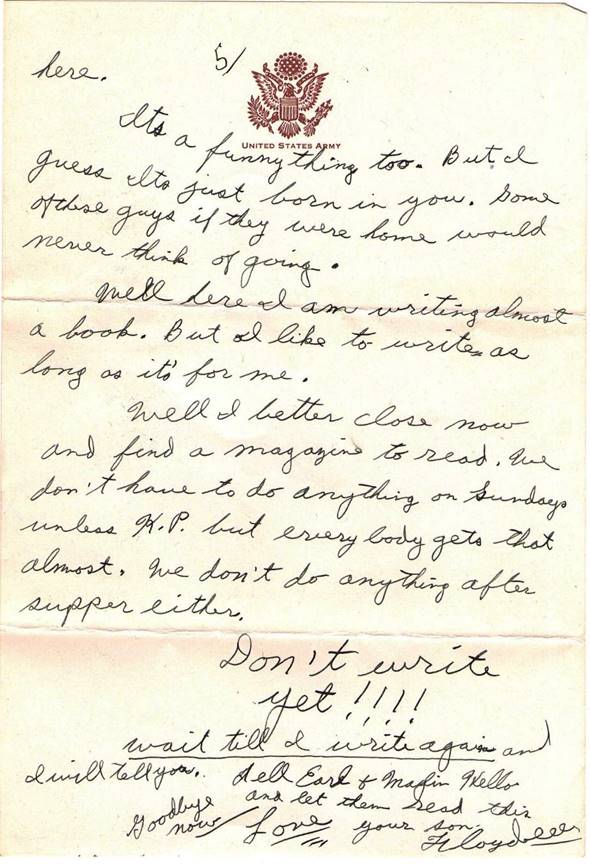 5/
UNITED STATES ARMY
here.
Its a funny thing too. But I
guess its just born in you. Some
of these guys if they were home would
never think of going.
Well here I am writing almost
a book. But I like to write as
long as it's for me.
Well I better close now
and find a magazine to read. We
don't have to do anything on Sundays
unless K.P. but every body gets that
almost. We don't do anything after
supper either.
Don't write
yet!!!!
wait till I write again and
I will tell you. Tell Earl & Hello
and let them read this
Goodbye
now Love your son,
Floyd